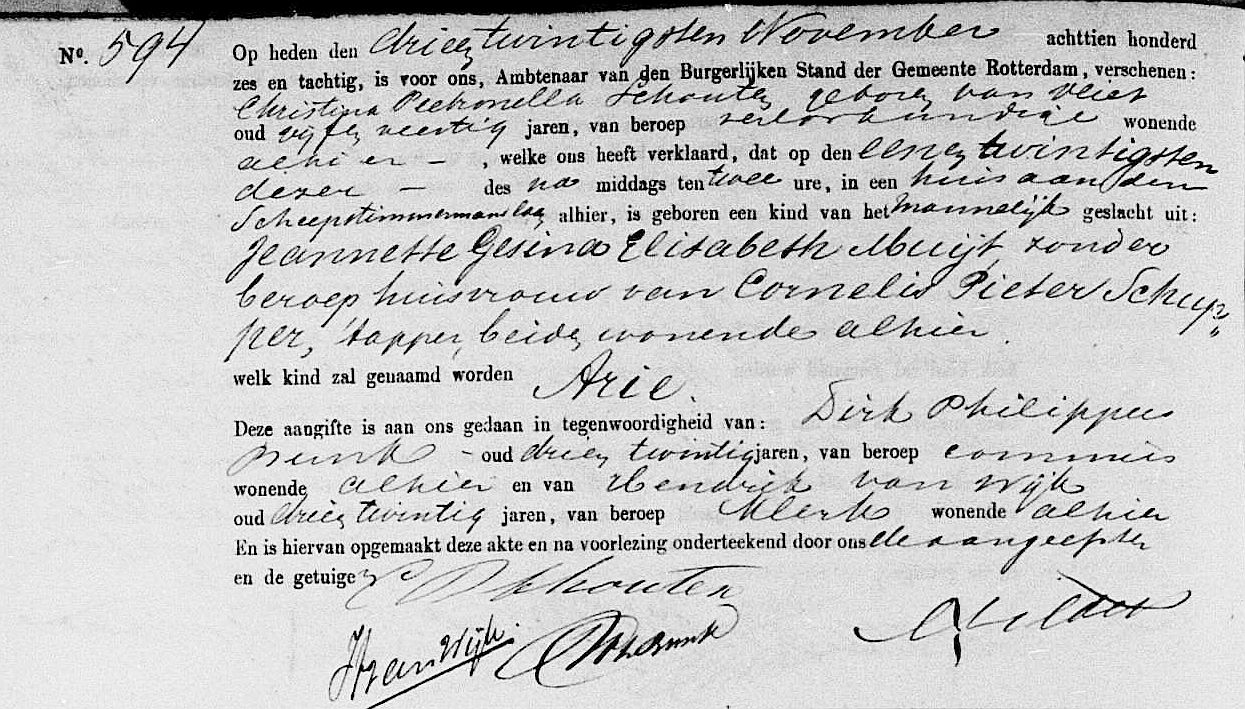 No. 594 Op heden den drieen twintigsten November achttien honderd
zes en tachtig, is voor ons, Ambtenaar van den Burgerlijken Stand der Gemeente Rotterdam, verschenen:
Christina Pietronella Schouten geboren van Vliet
oud vijfen veertig jaren, van beroep verloskundige wonende
alhier — , welke ons heeft verklaard, dat op den eenen twintigsten
dezer — des na middags ten twee ure, in een huis aan den
Scheepstimmermanslaan alhier, is geboren een kind van het mannelijk geslacht uit:
Jeannette Gesina Elisabeth Muijt, zonder
beroep huisvrouw van Cornelis Pieter Schup„
per, tapper, beiden wonende alhier.
welk kind zal genaamd worden Arie.
Deze aangifte is aan ons gedaan in tegenwoordigheid van: Dirk Philippus
— oud drieen twintig jaren, van beroep commies
wonende alhier en van Hendrik van Wijk
oud drieen twintig jaren, van beroep klerk wonende alhier
En is hiervan opgemaakt deze akte en na voorlezing onderteekend door ons de aangeefster
en de getuigen
Schouten
HvanWijk.